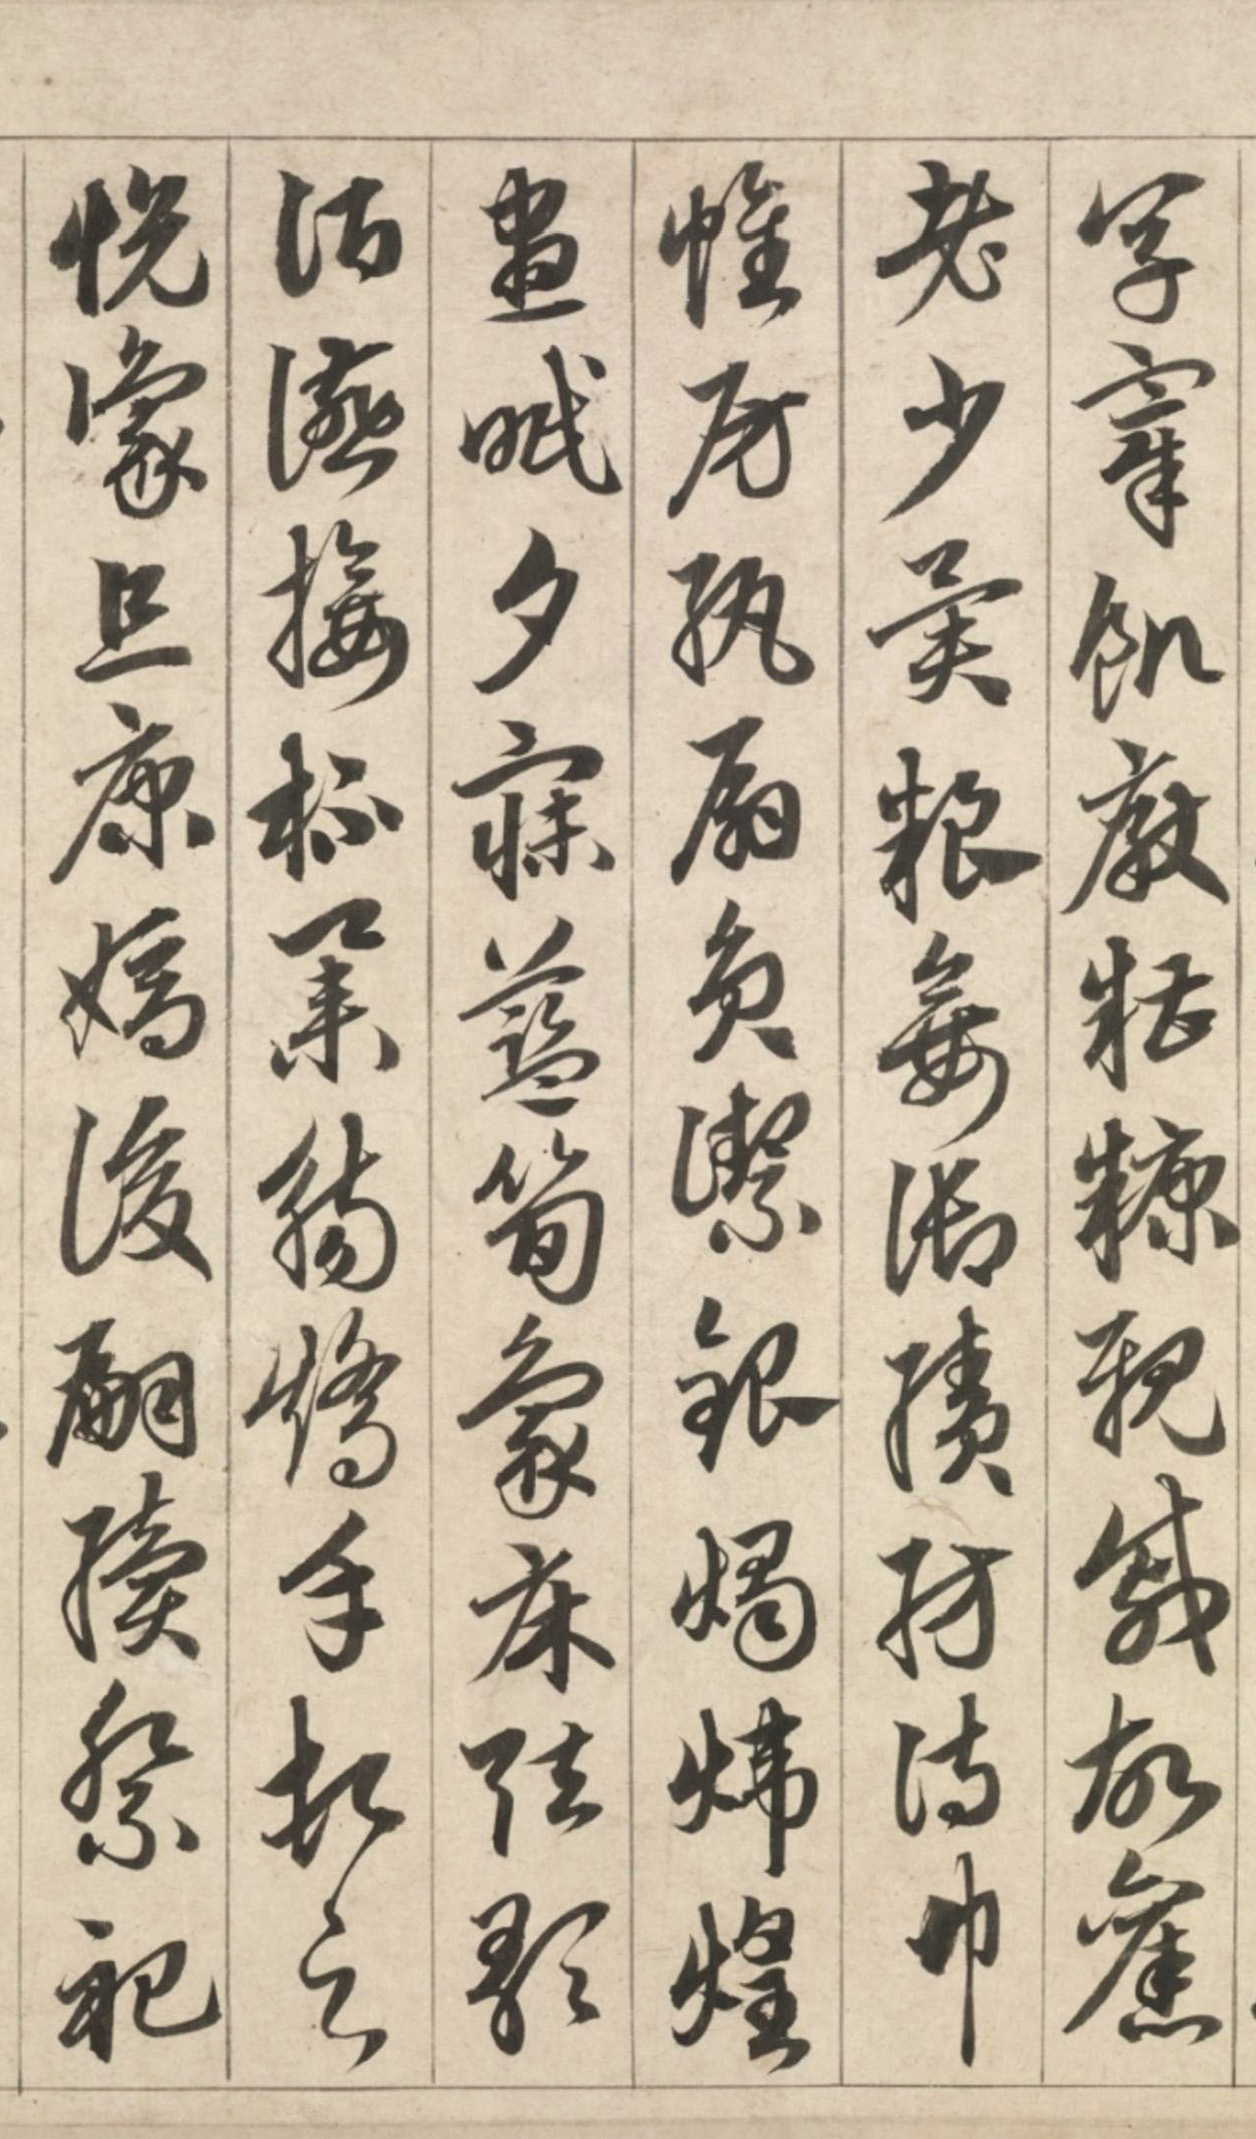 享宰飢厭糟糠親戚故舊
老少異粮妾御績紡侍巾
帷房紈扇員潔銀燭煒煌
晝眠夕寐藍筍象床弦歌
酒讌接杯舉觴矯手頓足
悅豫且康嫡後嗣續祭祀